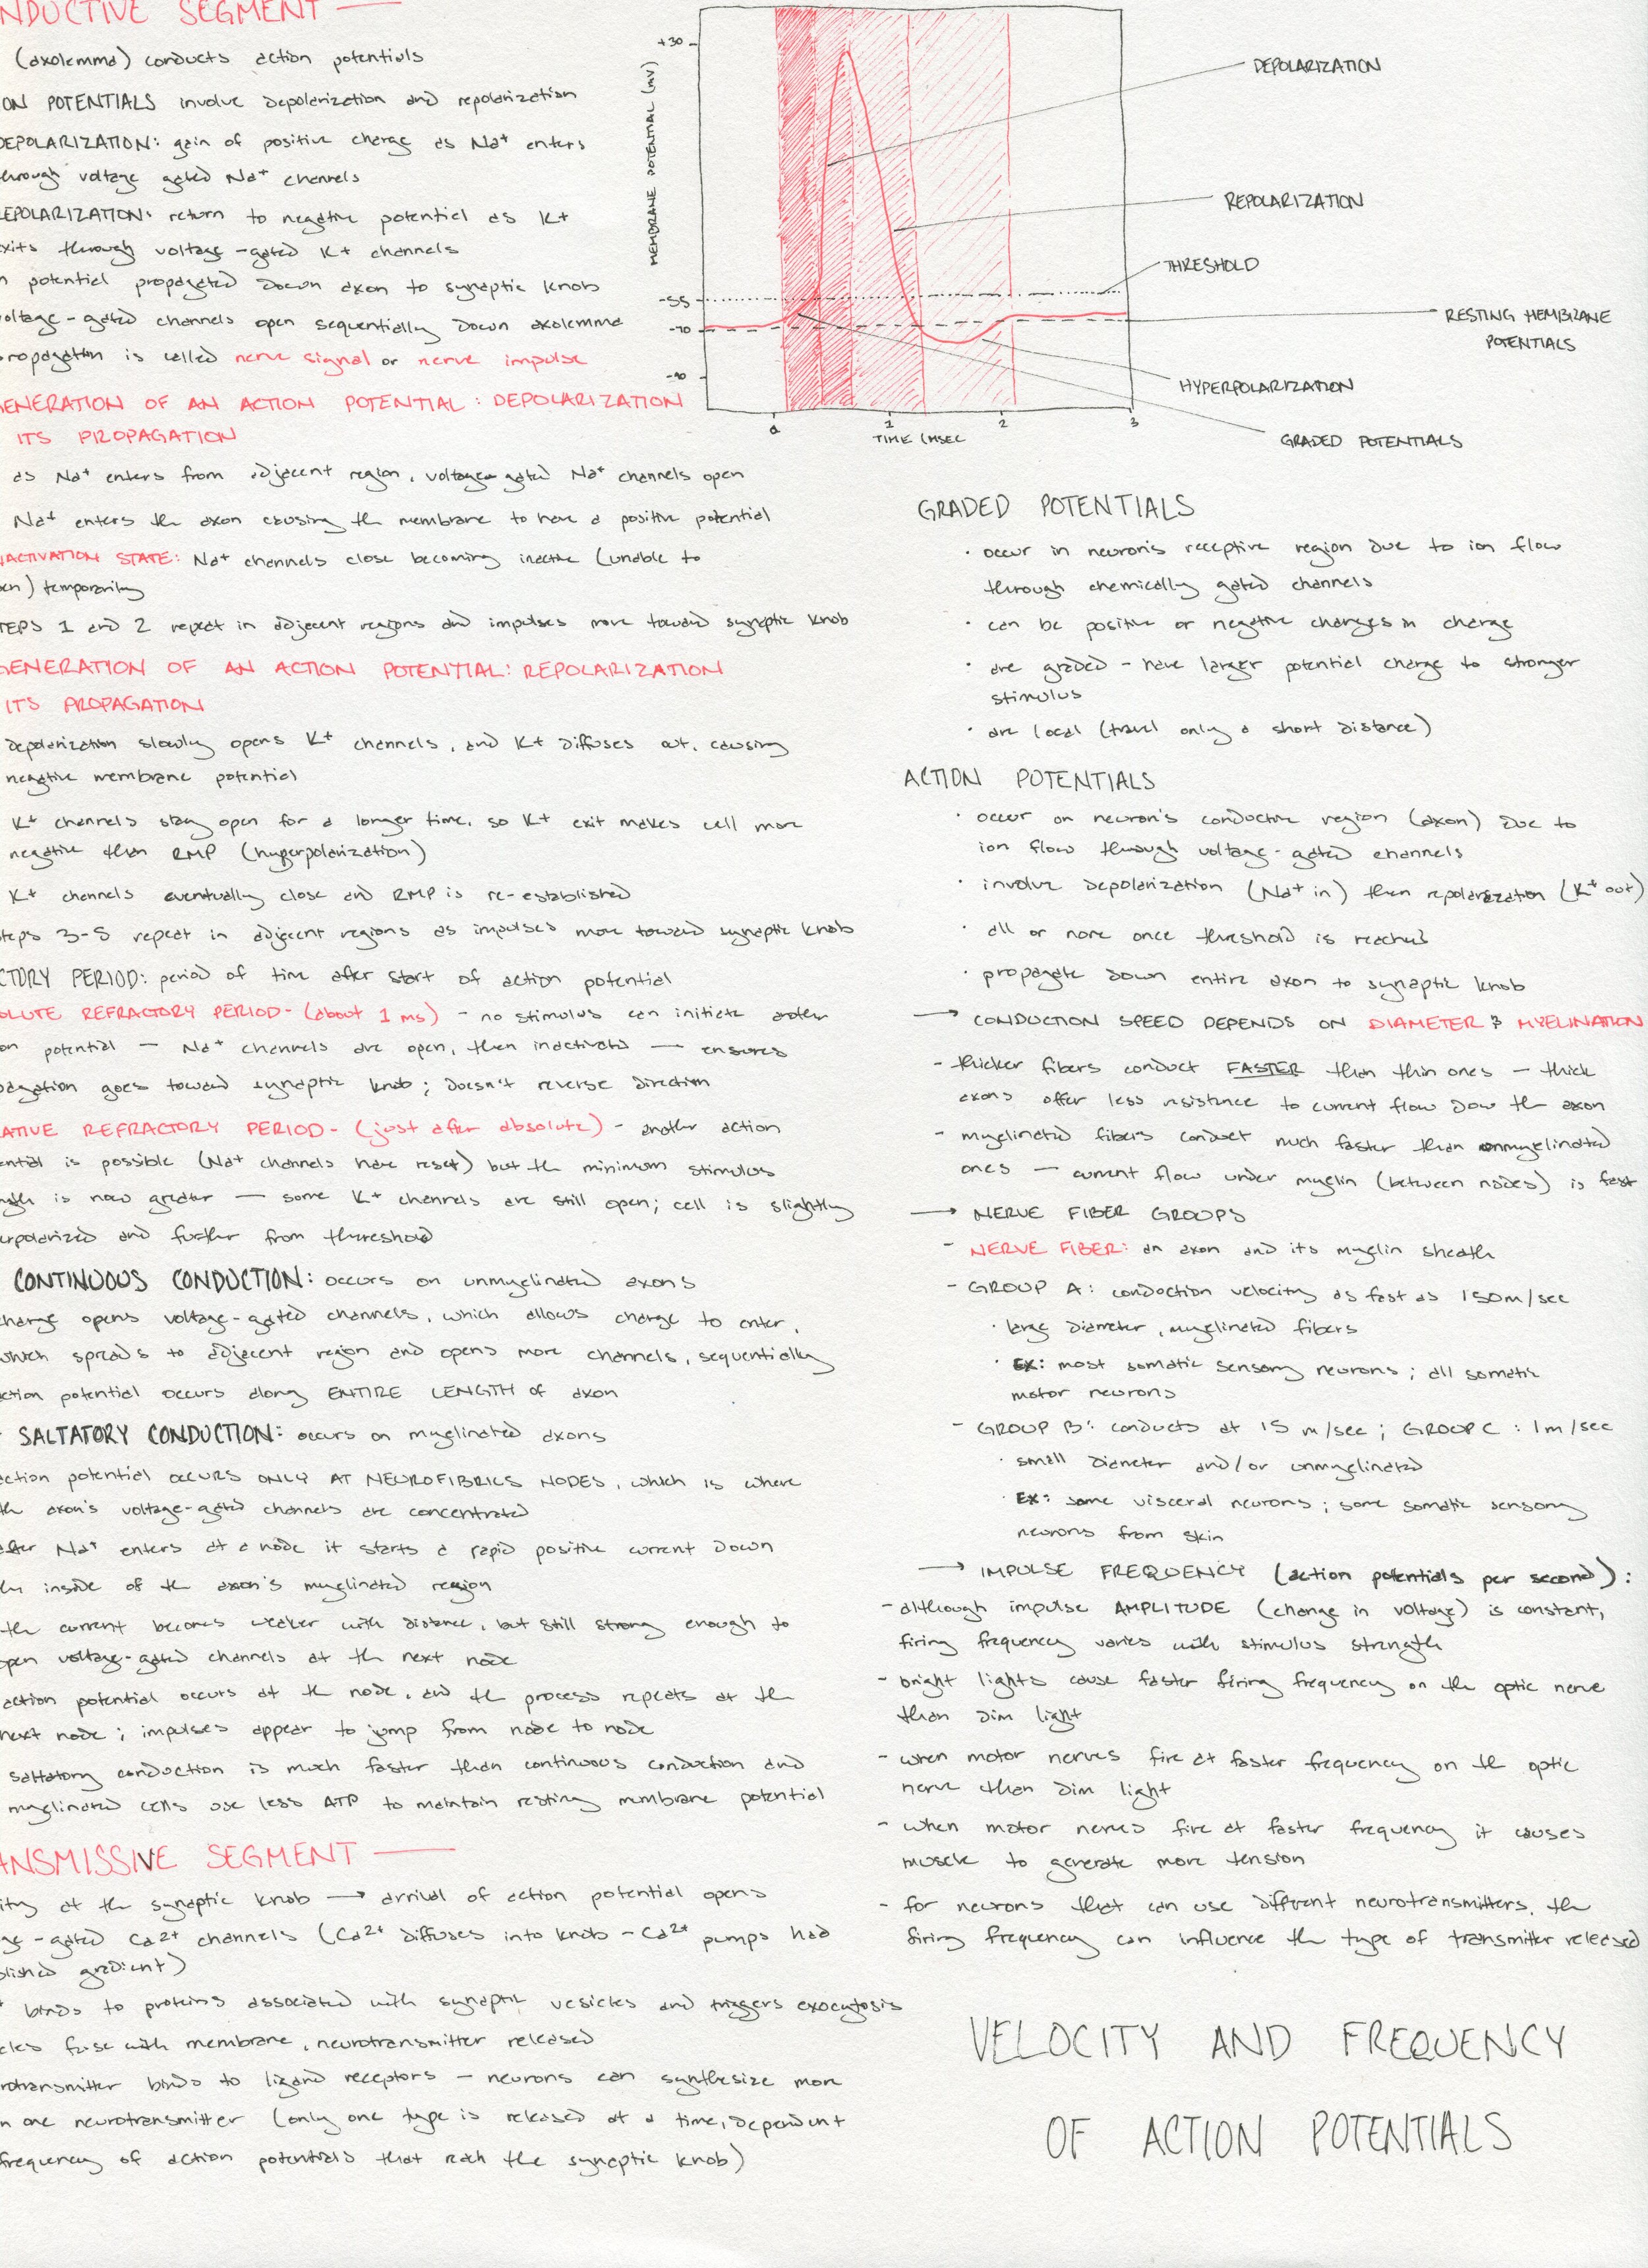 NDUCTIVE SEGMENT —
(axolemma) conducts action potentials
ON POTENTIALS involve depolarization and repolarization
DEPOLARIZATION: gain of positive charge as Na+ enters
through voltage gated Na+ channels
EPOLARIZATION: return to negative potential as K+
xits through voltage-gated K+ channels
n potential propagated down axon to synaptic knob
oltage-gated channels open sequentially down axolemma
propagation is called nerve signal or nerve impulse
GENERATION OF AN ACTION POTENTIAL: DEPOLARIZATION
ITS PROPAGATION
as Na+ enters from adjacent region, voltage gated Na+ channels open
Na+ enters the axon causing the membrane to have a positive potential
NACTIVATION STATE: Na+ channels close becoming inactive (unable to
en) temporarily
TEPS 1 and 2 repeat in adjacent regions and impulses move toward synaptic knob
GENERATION OF AN ACTION POTENTIAL: REPOLARIZATION
ITS PROPAGATION
Depolarization slowly opens K+ channels, and K+ diffuses out, causing
negative membrane potential
K+ channels stay open for a longer time, so K+ exit makes cell more
negative than RMP (hyperpolarization)
K+ channels eventually close and RMP is re-established
teps 3-5 repeat in adjacent regions as impulses move toward synaptic knob
CTORY PERIOD: period of time after start of action potential
OLUTE REFRACTORY PERIOD- (about 1 ms) - no stimulus can initiate another
on potential — Na+ channels are open, then inactivated — ensures
pagation goes toward synaptic knob; doesn't reverse direction
ATIVE REFRACTORY PERIOD- (just after absolute) - another action
ential is possible (Na+ channels have reset) but the minimum stimulus
ngth is now greater — some K+ channels are still open; cell is slightly
erpolarized and further from threshold
CONTINUOUS CONDUCTION: occurs on unmyelinated axons
charge opens voltage-gated channels, which allows charge to enter,
which spreads to adjacent region and opens more channels, sequentially
ction potential occurs along ENTIRE LENGTH of axon
SALTATORY CONDUCTION: occurs on myelinated axons
action potential OCCURS ONLY AT NEUROFIBRILS NODES, which is where
the axon's voltage-gated channels are concentrated
after Na+ enters at a node it starts a rapid positive current down
the inside of the axon's myelinated region
the current becomes weaker with distance, but still strong enough to
open voltage-gated channels at the next node
action potential occurs at the node, and the process repeats at the
next node; impulses appear to jump from node to node
saltatory conduction is much faster than continuous conduction and
myelinated cells use less ATP to maintain resting membrane potential
ANSMISSIVE SEGMENT —
ity at the synaptic knob → arrival of action potential opens
ge-gated Ca2+ channels (Ca2+ diffuses into knob - Ca2+ pumps had
blished gradient)
+ binds to proteins associated with synaptic vesicles and triggers exocytosis
cles fuse with membrane, neurotransmitter released
rotransmitter binds to ligand receptors — neurons can synthesize more
n one neurotransmitter (only one type is released at a time, dependent
frequency of action potentials that reach the synaptic knob)
MEMBRANE POTENTIAL (mV)
+30
-55
-70
-90
0 1 2 3
TIME (MSEC
DEPOLARIZATION
REPOLARIZATION
THRESHOLD
RESTING MEMBRANE
POTENTIALS
HYPERPOLARIZATION
GRADED POTENTIALS
GRADED POTENTIALS
· occur in neuron's receptive region due to ion flow
through chemically gated channels
· can be positive or negative changes in charge
· are graded - have larger potential change to stronger
stimulus
· are local (travel only a short distance)
ACTION POTENTIALS
· occur on neuron's conductive region (axon) due to
ion flow through voltage-gated channels
· involve depolarization (Na+ in) then repolarization (K+ out)
· all or none once threshold is reached
· propagate down entire axon to synaptic knob
→ CONDUCTION SPEED DEPENDS ON DIAMETER & MYELINATION
- thicker fibers conduct FASTER than thin ones — thick
axons offer less resistance to current flow dow the axon
- myelinated fibers conduct much faster than unmyelinated
ones — current flow under myelin (between nodes) is fast
→ NERVE FIBER GROUPS
- NERVE FIBER: an axon and its myelin sheath
- GROUP A: conduction velocity as fast as 150m/sec
· large diameter, myelinated fibers
· Ex: most somatic sensory neurons; all somatic
motor neurons
- GROUP B: conducts at 15 m/sec; GROUP C: 1m/sec
· small diameter and/or unmyelinated
· Ex: some visceral neurons; some somatic sensory
neurons from skin
→ IMPULSE FREQUENCY (action potentials per second):
- although impulse AMPLITUDE (change in voltage) is constant,
firing frequency varies with stimulus strength
- bright lights cause faster firing frequency on the optic nerve
than dim light
- when motor nerves fire at faster frequency on the optic
nerve than dim light
- when motor nerves fire at faster frequency it causes
muscle to generate more tension
- for neurons that can use different neurotransmitters, the
firing frequency can influence the type of transmitter released
VELOCITY AND FREQUENCY
OF ACTION POTENTIALS